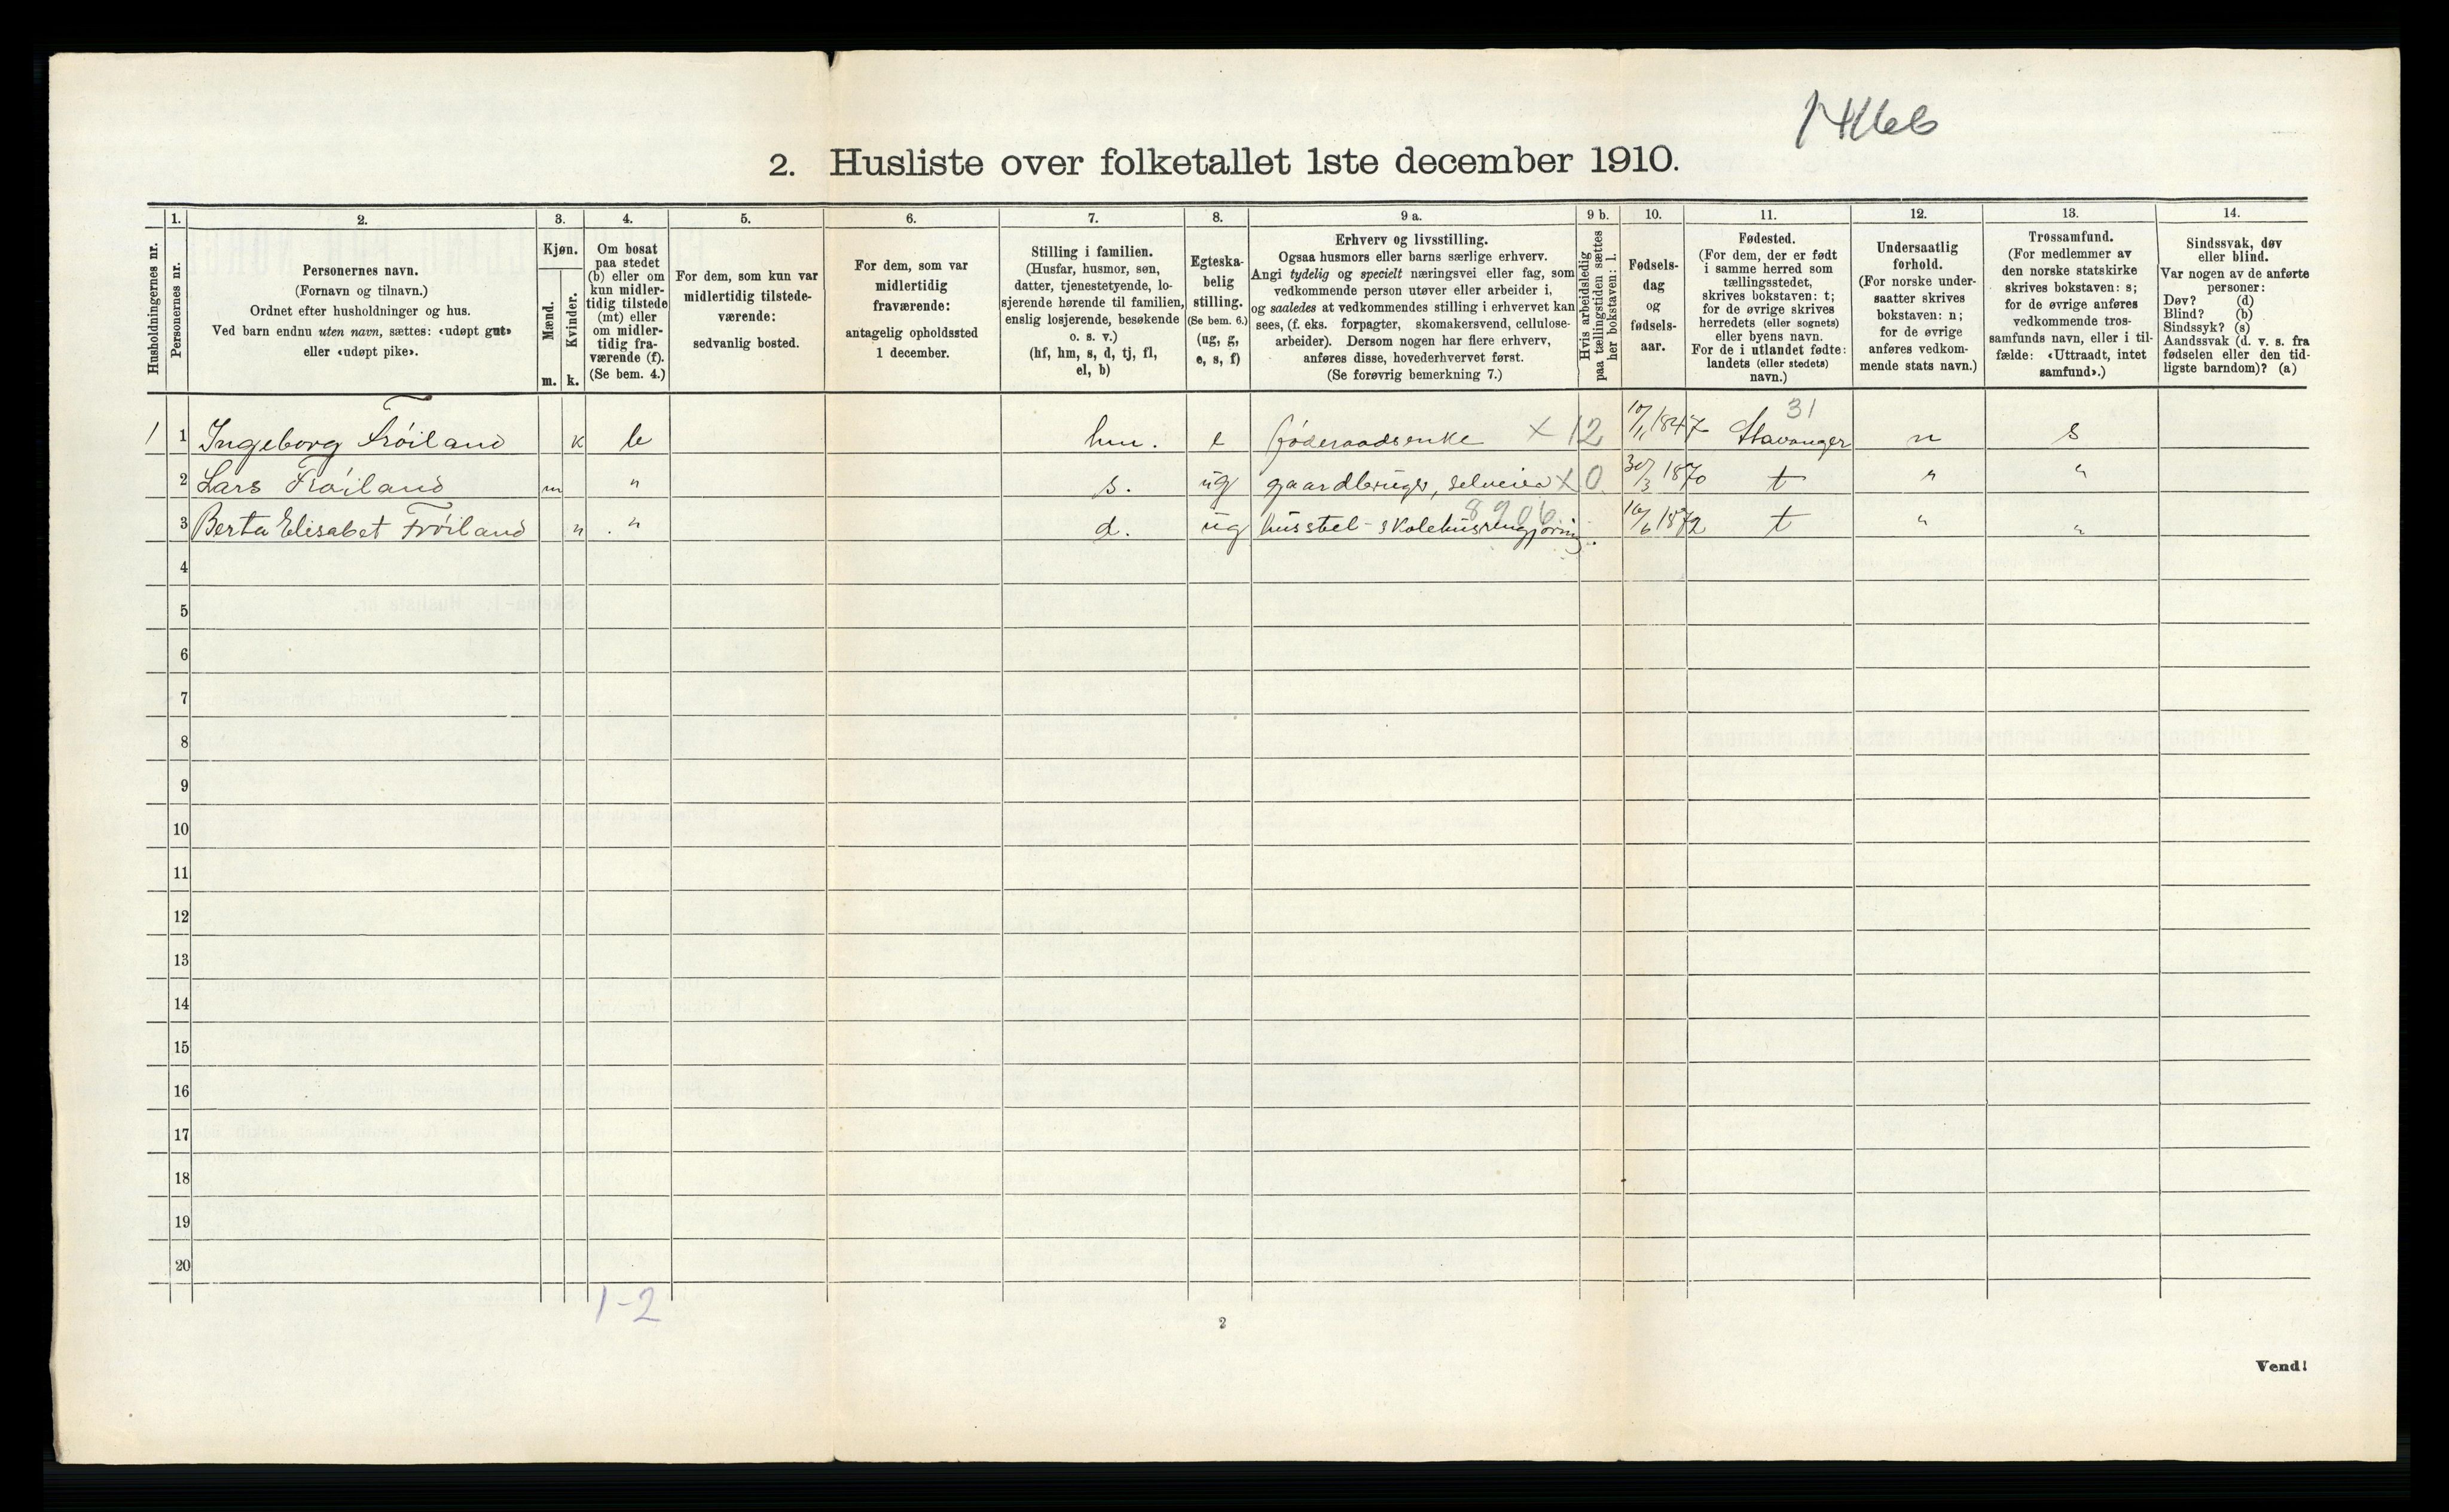 2. Husliste over folketallet 1ste december 1910.
Husholdningernes nr.
1.
Personernes nr.
2.
Personernes navn.
(Fornavn og tilnavn.)
Ordnet efter husholdninger og hus.
Ved barn endnu uten navn, sættes: «udøpt gut»
eller «udøpt pike».
3.
Kjøn.
Mænd.
Kvinder.
m. k.
4.
Om bosat
paa stedet
(b) eller om
kun midler-
tidig tilstede
(mt) eller
om midler-
tidig fra-
værende (f).
(Se bem. 4.)
5.
For dem, som kun var
midlertidig tilstede-
værende:
sedvanlig bosted.
6.
For dem, som var
midlertidig
fraværende:
antagelig opholdssted
1 december.
7.
Stilling i familien.
(Husfar, husmor, søn,
datter, tjenestetyende, lo-
sjerende hørende til familien,
enslig losjerende, besøkende
o. s. v.)
(hf, hm, s, d, tj, fl,
el, b)
8.
Egteska-
belig
stilling.
(Se bem. 6.)
(ug, g,
e, s, f)
9 a.
Erhverv og livsstilling.
Ogsaa husmors eller barns særlige erhverv.
Angi tydelig og specielt næringsvei eller fag, som
vedkommende person utøver eller arbeider i,
og saaledes at vedkommendes stilling i erhvervet kan
sees, (f. eks. forpagter, skomakersvend, cellulose-
arbeider). Dersom nogen har flere erhverv,
anføres disse, hovederhvervet først.
(Se forøvrig bemerkning 7.)
9 b.
Hvis arbeidsledig
paa tællingstiden sættes
her bokstaven: l.
10.
Fødsels-
dag
og
fødsels-
aar.
11.
Fødested.
(For dem, der er født
i samme herred som
tællingsstedet,
skrives bokstaven: t;
for de øvrige skrives
herredets (eller sognets)
eller byens navn.
For de i utlandet fødte:
landets (eller stedets)
navn.)
12.
Undersaatlig
forhold.
(For norske under-
saatter skrives
bokstaven: n;
for de øvrige
anføres vedkom-
mende stats navn.)
13.
Trossamfund.
(For medlemmer av
den norske statskirke
skrives bokstaven: s;
for de øvrige anføres
vedkommende tros-
samfunds navn, eller i til-
fælde: «Uttraadt, intet
samfund».)
14.
Sindssvak, døv
eller blind.
Var nogen av de anførte
personer:
Døv? (d)
Blind? (b)
Sindssyk? (s)
Aandssvak (d. v. s. fra
fødselen eller den tid-
ligste barndom)? (a)
31
1 1 Ingeborg Frøiland k b hm. e føderaadsenke × 12 1847 Stavanger n s
2 Lars Frøiland m " s. ug gaardbruger, selveier × 0 30/3 1870 t " "
8906
3 Berta Elisabet Frøiland " " d. ug husstel - skolehusrengjøring. 16/6 1872 t " "
4
5
6
7
8
9
10
11
12
13
14
15
16
17
18
19
20
1-2
2
Vend!